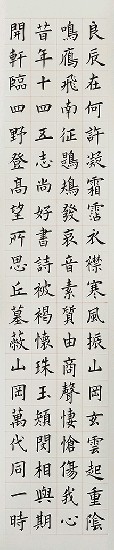 良辰在何許凝霜霑衣襟寒風振山岡玄雲起重陰
鳴鴈飛南征鶗鴂發哀音素質由商聲悽愴傷我心
昔年十四五志尚好書詩被褐懷珠玉顏閔相與期
開軒臨四野登高望所思丘墓蔽山岡萬代同一時